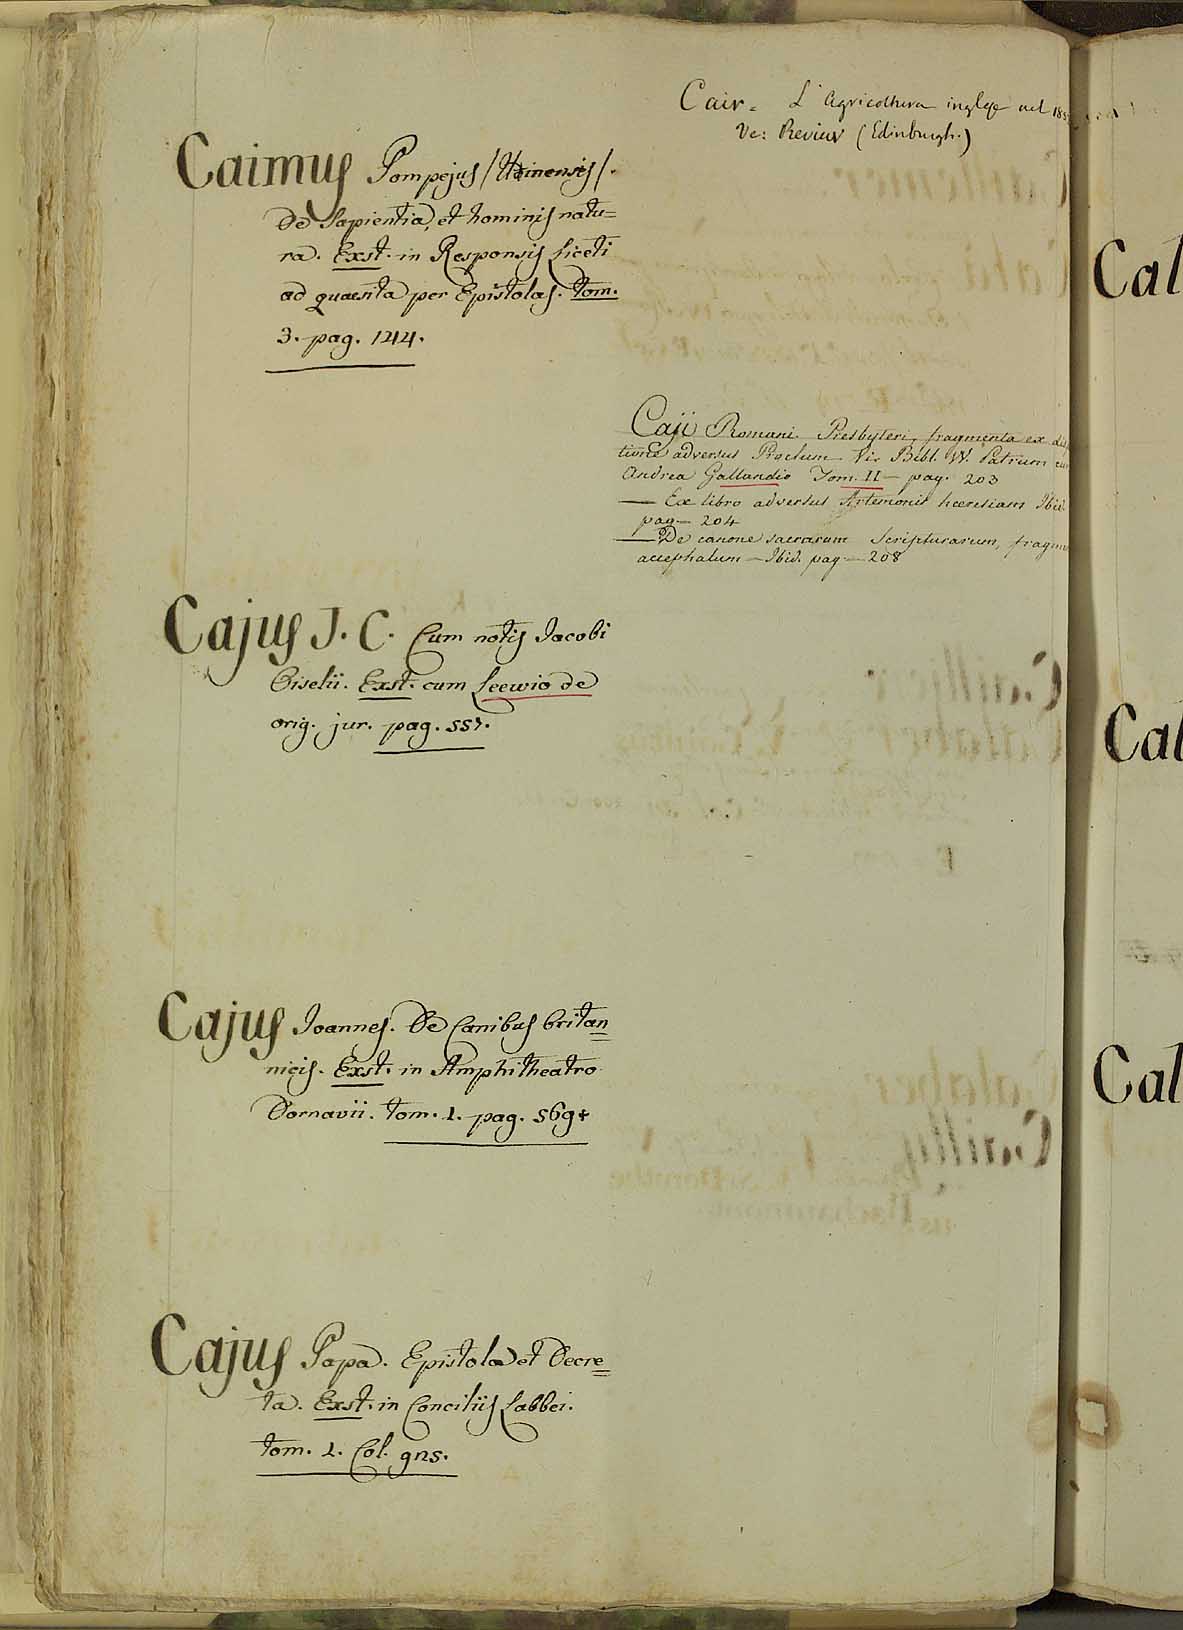 Cair. L'Agricoltura inglese nel 185
Ve: Review (Edinburgh.)
Caimus Pompejus /Utinensis/.
De Sapientia, et hominis natu=
ra. Exst. in Responsis Liceti
ad quaesita per Epistolas. tom.
3. pag. 144.
Caji Romani Presbyteri, fragmenta ex
tione adversus Proclum Vis Bibl. VV. Patrum
Andrea Gallandio Tom. II - pag. 203
— Ex libro adversus Artemonis haeresiam Ibid.
pag - 204
— De canone sacrarum Scripturarum, fragm
acephalum - Ibid. pag - 208
Cajus J. C. Cum notis Jacobi
Oiselii. Exst. cum Leewio de
orig. jur. pag. 557.
Cajus Joannes. De Canibus britan=
nicis. Exst. in Amphitheatro
Dornavii. tom. 1. pag. 569
Cajus Papa. Epistola et Decre=
ta. Exst. in Conciliis Labbei.
tom. 1. Col.
Cal
Cal
Cal